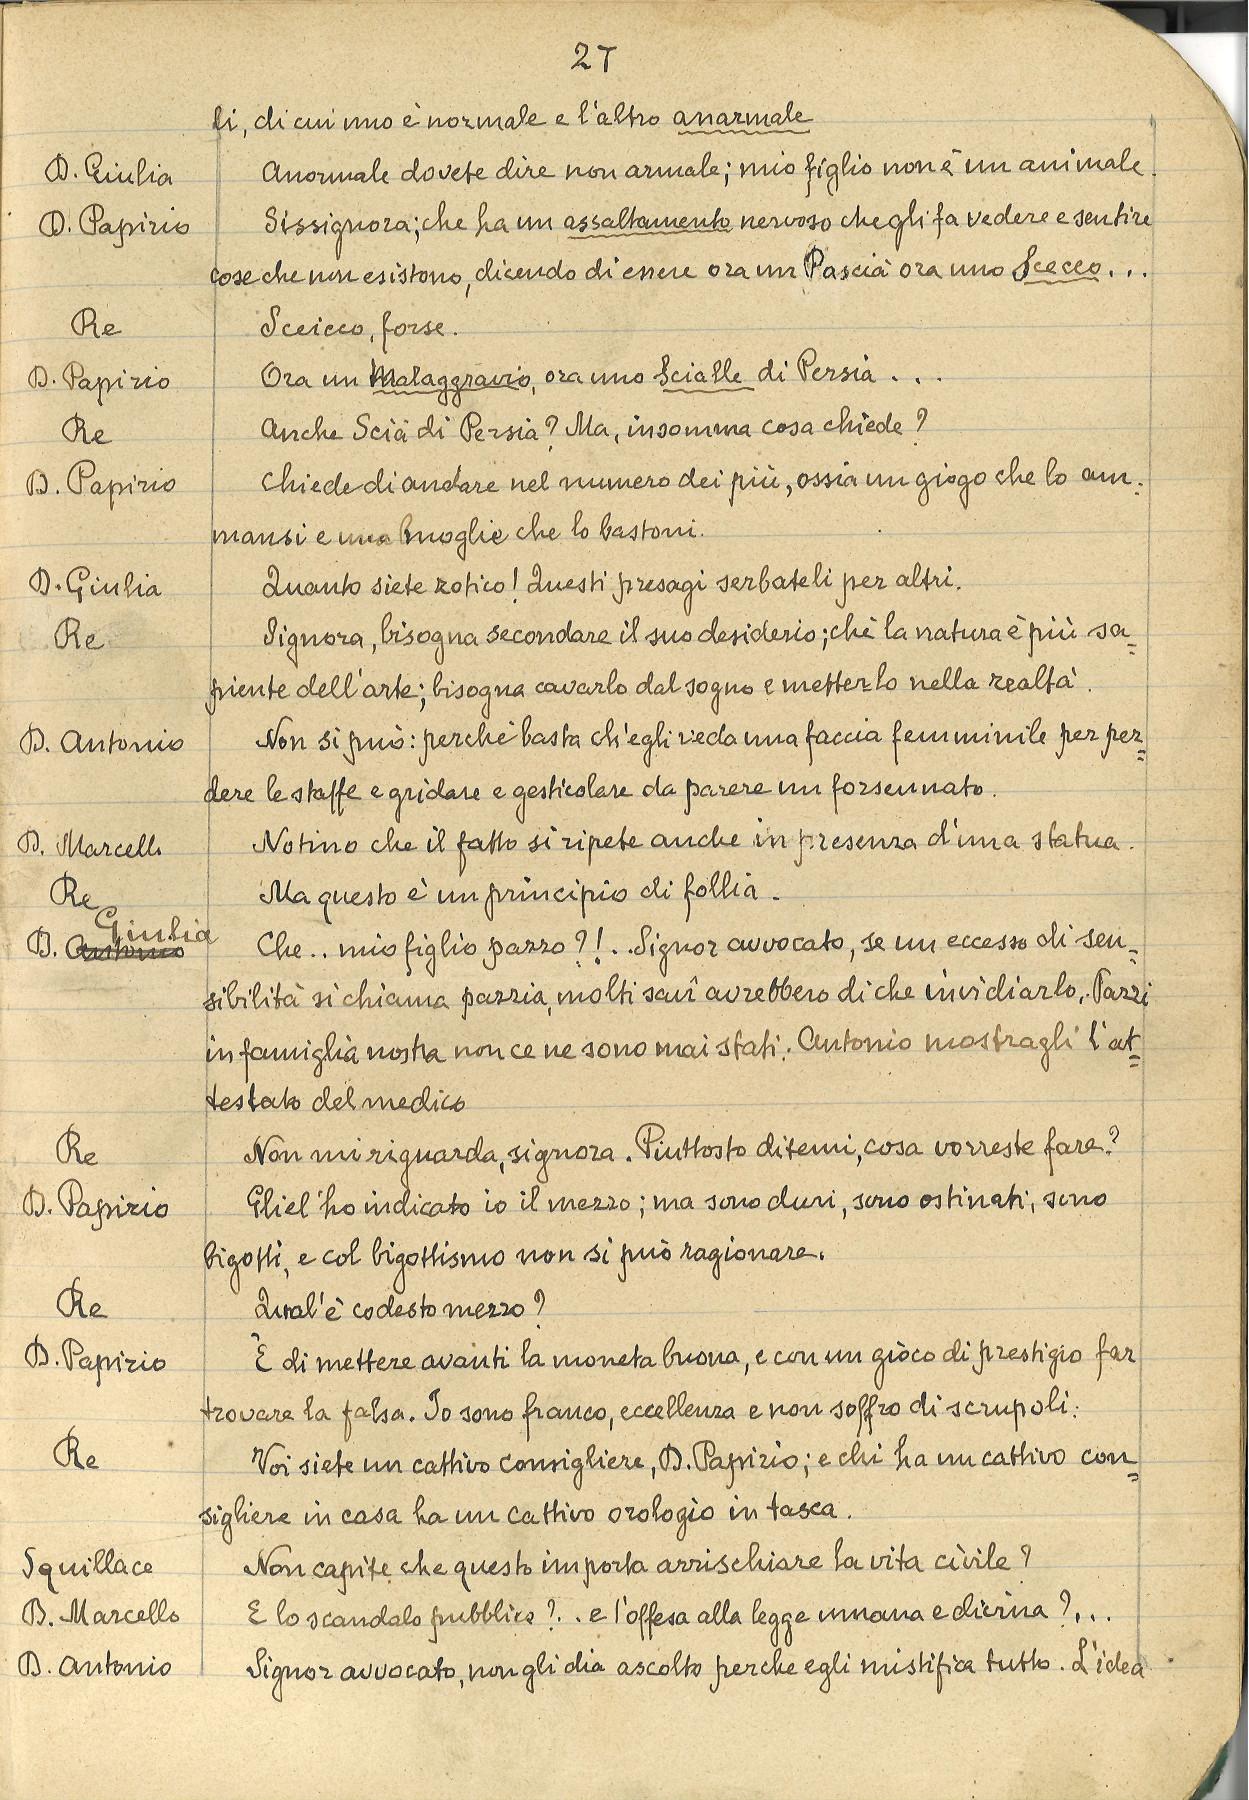 27
li, di cui uno è normale e l'altro anarmale
D. Giulia Anormale dovete dire non armale; mio figlio non è un animale.
D. Papirio Sissignora; che ha un assaltamento nervoso che gli fa vedere e sentire
cose che non esistono, dicendo di essere ora un Pascià ora uno Scecco...
Re Sceicco, forse.
D. Papirio Ora un Malaggravio, ora uno Scialle di Persia...
Re Anche Scià di Persia? Ma, insomma cosa chiede?
D. Papirio Chiede di andare nel numero dei più, ossia un giogo che lo am-
mansi e una moglie che lo bastoni.
D. Giulia Quanto siete zotico! Questi presagi serbateli per altri.
Re Signora, bisogna secondare il suo desiderio; chè la natura è più sa=
piente dell'arte; bisogna cavarlo dal sogno e metterlo nella realtà.
D. Antonio Non si può: perchè basta ch'egli veda una faccia femminile per per=
dere le staffe e gridare e gesticolare da parere un forsennato.
D. Marcello Notino che il fatto si ripete anche in presenza d'una statua.
Re Ma questo è un principio di follia.
D. Antonio Giulia Che.. mio figlio pazzo?!.. Signor avvocato, se un eccesso di sen=
sibilità si chiama pazzia, molti savî avrebbero di che invidiarlo. Pazzi
in famiglia nostra non ce ne sono mai stati. Antonio mostragli l'at=
testato del medico
Re Non mi riguarda, signora. Piuttosto ditemi, cosa vorreste fare?
D. Papirio Gliel'ho indicato io il mezzo; ma sono duri, sono ostinati, sono
bigotti, e col bigottismo non si può ragionare.
Re Qual'è codesto mezzo?
D. Papirio È di mettere avanti la moneta buona, e con un giòco di prestigio far
trovare la falsa. Io sono franco, eccellenza e non soffro di scrupoli.
Re Voi siete un cattivo consigliere, D. Papirio; e chi ha un cattivo con=
sigliere in casa ha un cattivo orologio in tasca.
Squillace Non capite che questo importa arrischiare la vita civile?
D. Marcello E lo scandalo pubblico?.. e l'offesa alla legge umana e divina?...
D. Antonio Signor avvocato, non gli dia ascolto perche egli mistifica tutto. L'idea